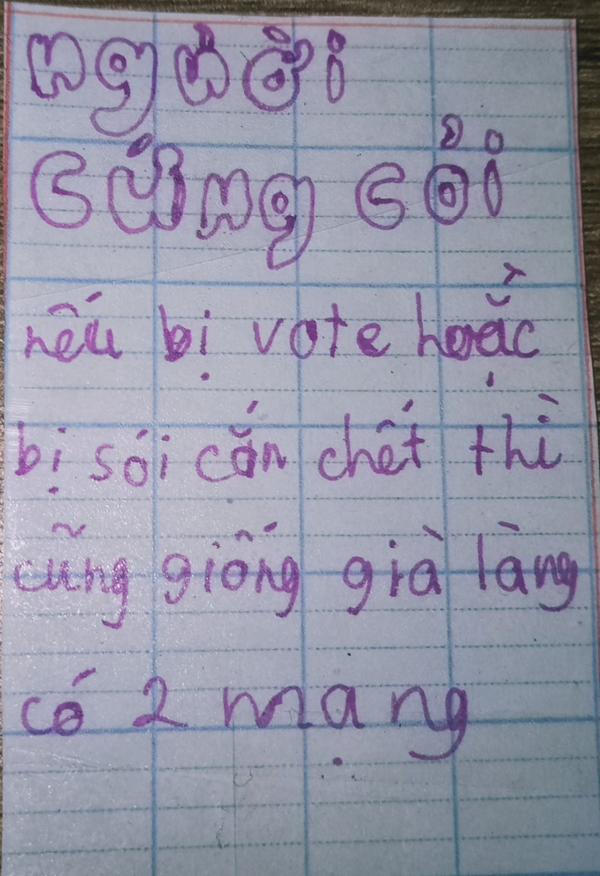 người
cứng cỏi
nếu bị vote hoặc
bị sói cắn chết thì
cũng giống già làng
có 2 mạng